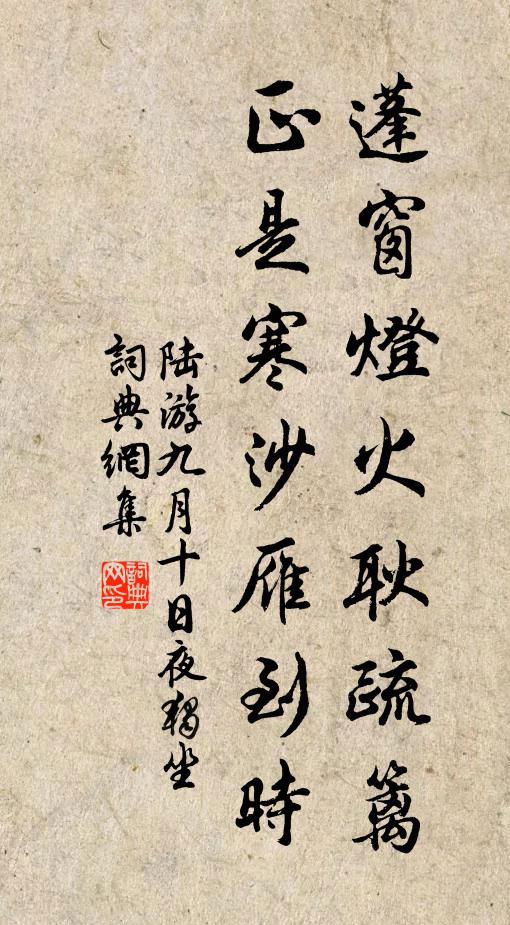 蓬窗燈火耿疏籬
正是寒沙雁到時
陸游九月十日夜獨坐
詞典網集
詞典網印